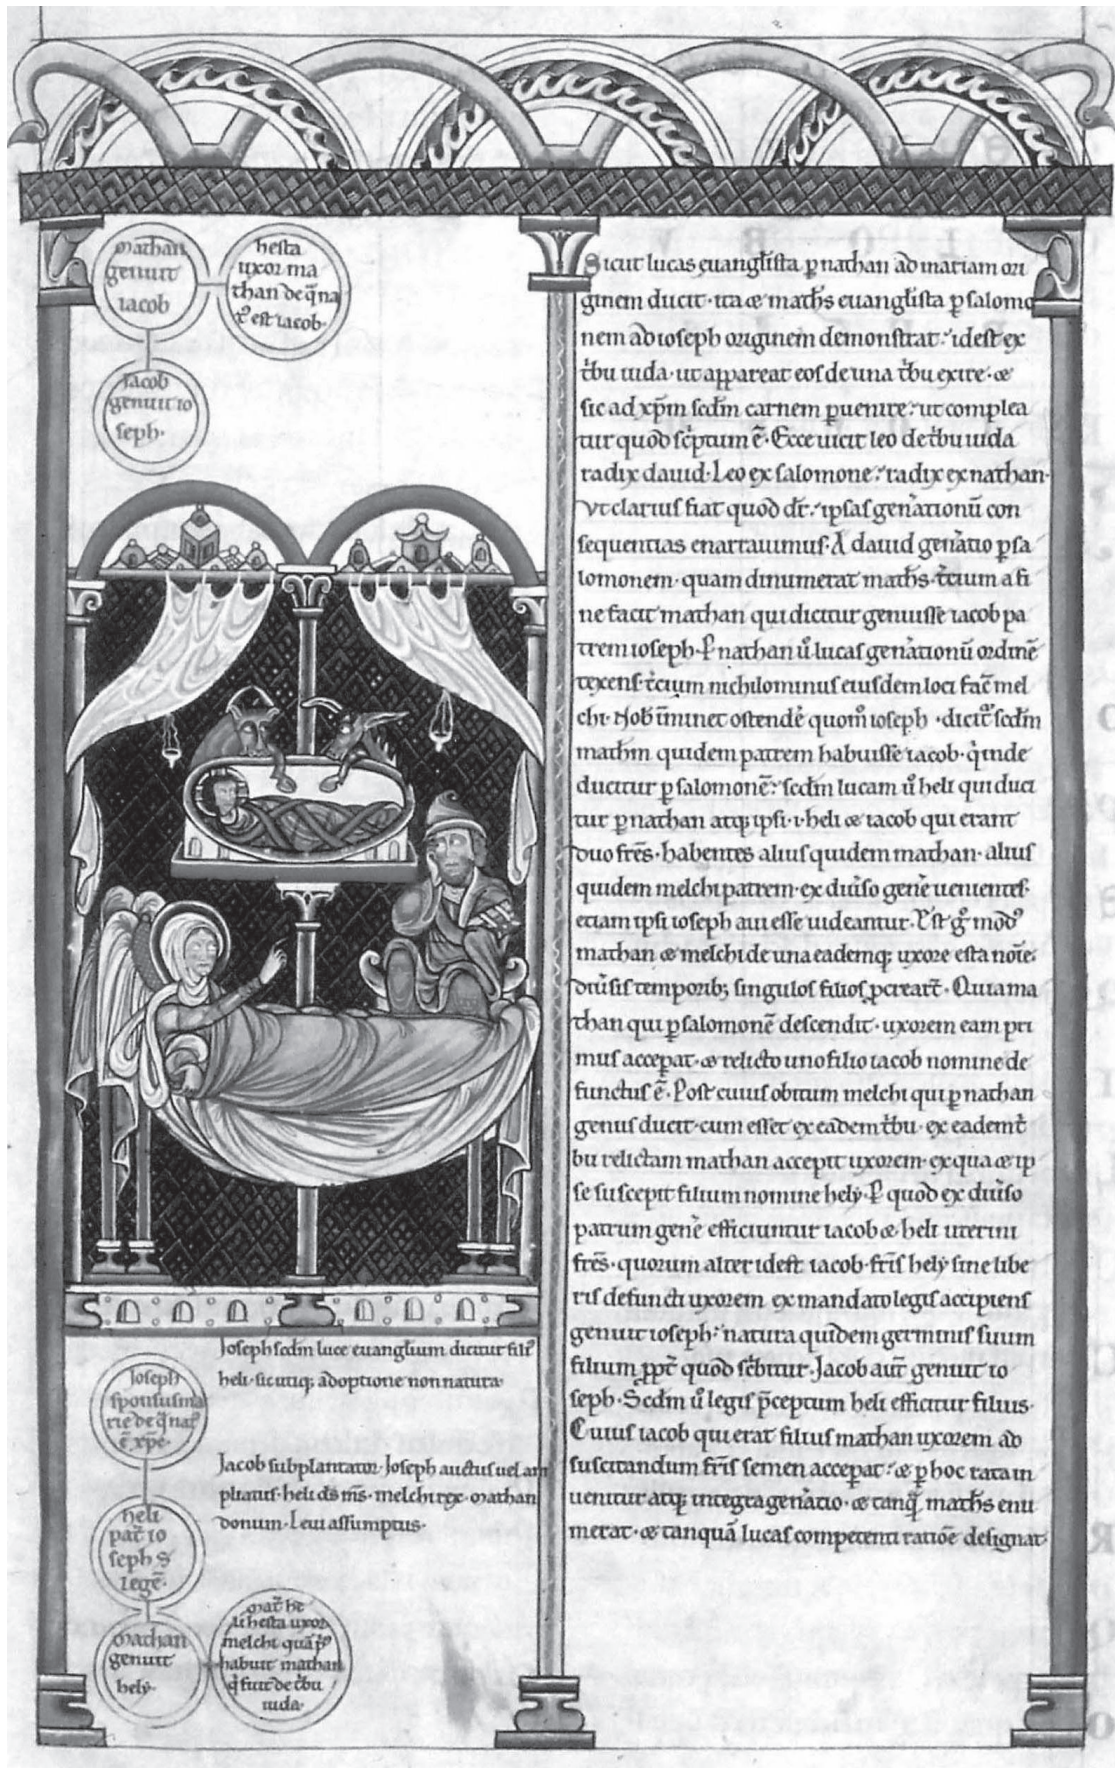 mathan
genuit
iacob
hesta
uxor ma
than de q̄ na
t᷒ est iacob·
Jacob
genuit io
seph·
Sicut lucas euangl̄ista ꝑ nathan ad mariam ori
ginem ducit· ita & math̄s euangl̄ista ꝑ salomo
nem ad ioseph originem demonstrat: idest ex
t̄bu iuda· ut appareat eos de una t̄bu exire· &
sic ad xp̄m scd̄m carnem ꝑuenire: ut complea
tur quod sc̄ptum ē· Ecce uicit leo de t̄bu iuda
radix dauid· Leo ex salomone: radix ex nathan·
Vt clarius fiat quod dr̄: ipsas gen̄ationū con
sequentias enarrauimus· A dauid gen̄atio ꝑ sa
lomonem· quam dinumerat math̄s· t̄cium a fi
ne facit mathan qui dicitur genuisse iacob pa
trem ioseph· Ꝑ nathan ū lucas gen̄ationū ordinē
texens· t̄cium nichilominus eiusdem loci fac̄ mel
chi· Nob̄ im̄inet ostende᷒ quom̄ ioseph ·dicit᷒ scd̄m
math̄m quidem patrem habuisse iacob· q̄ inde
ducitur ꝑ salomonē: scd̄m lucam ū heli qui duci
tur ꝑ nathan atq; ipsi·i·heli & iacob qui erant
duo fr̄es· habentes alius quidem mathan· alius
quidem melchi patrem· ex diūso gen̄e uenientes·
etiam ipsi ioseph aui esse uideantur· Est g̊ mod᷒
mathan & melchi de una eademq; uxore esta noīe:
diūsis temporib; singulos filios ꝓcrear̄t· Quia ma
than qui ꝑ salomonē descendit· uxorem eam pri
mus acceꝑat· & relicto uno filio iacob nomine de
functus ē· Post cuius obitum melchi qui ꝑ nathan
genus ducit· cum esset ex eadem t̄bu· ex eadem t̄
bu relictam mathan accepit uxorem· ex qua & ip
se suscepit filium nomine hely· Ꝑ quod ex diūso
patrum gen̄e efficiuntur iacob & heli uterini
fr̄es· quorum alter idest iacob· fr̄is hely sine libe
ris defuncti uxorem ex mandato legis accipiens
genuit ioseph: natura quidem germinis suum
filium ꝓpt̄ quod sc̄bitur· Jacob aut̄ genuit io
seph· Scd̄m ū legis p̄ceptum heli efficitur filius·
Cuius iacob qui erat filius mathan uxorem ad
suscitandum fr̄is semen acceꝑat: & ꝑ hoc rata in
uenitur atq; integra gen̄atio· & tanq̄ math̄s enu
merat· & tanquā lucas competenti ratiōe designat·
Joseph scd̄m luce euanglium dicitur fili᷒
heli· sic utiq; adoptione non natura·
Joseph
sponsus ma
rie de q̄ nat᷒
ē xp̄c·
Jacob subplantator· Joseph auctus uel am
pliatus· heli ds̄ m̄s· melchi rex· mathan
donum· Leui assumptus·
heli
pat̄ io
seph s̄
legē·
mathan
genuit
hely·
mat̄ he
li hesta uxor
melchi quā p᷒
habuit mathan
q̄ fuit de t̄bu
iuda·